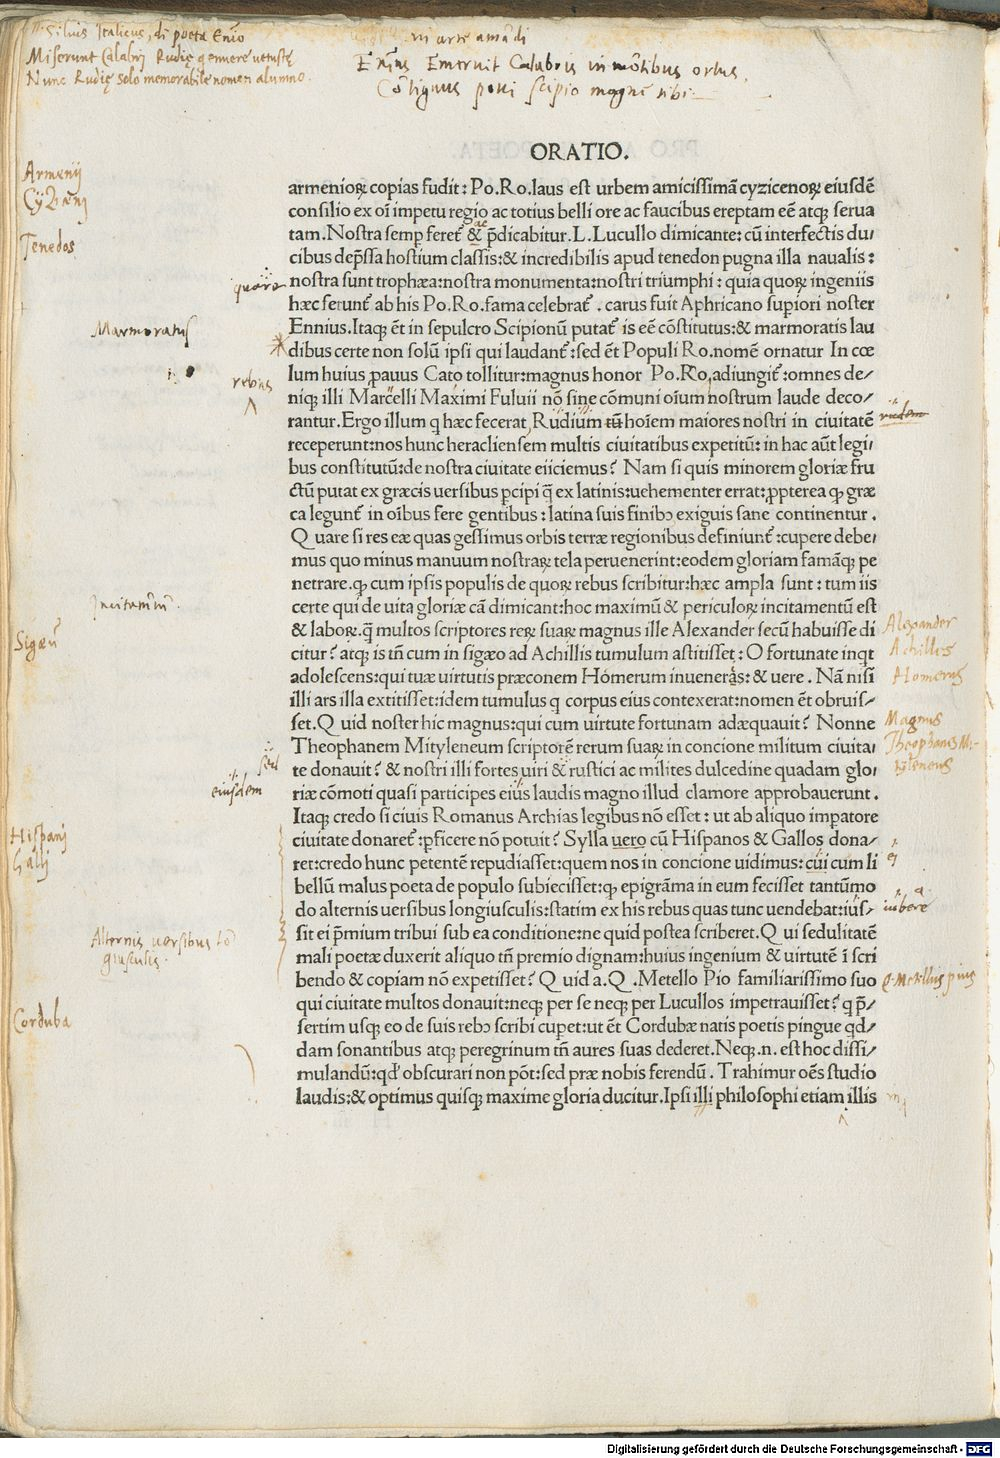 Silius Italicus, di poeta Enio
Miserunt Calabri Rudię genuere uetustę
Nunc Rudię solo memorabile nomen alumno.
in arte amādi
Enīus Emeruit Calabris in mōtibus ortus,
Cōtiguus poni Scipio magne tibi
ORATIO.
Armenij
Cyzęni
Tenedos
armenioꝝ copias fudit: Po.Ro.laus est urbem amicissimā cyzicenoꝝ eiusdē
consilio ex oī impetu regio ac totius belli ore ac faucibus ereptam eē atqꝫ serua
ac
tam.Nostra semꝑ feret̄ & p̄dicabitur.L.Lucullo dimicante: cū interfectis du/
cibus dep̄ssa hostium classis:& incredibilis apud tenedon pugna illa naualis:
quare
nostra sunt trophæa:nostra monumenta:nostri triumphi: quia quoꝝ ingeniis
hæc ferunt̄ ab his Po.Ro.fama celebrat̄. carus fuit Aphricano supiori noster
Marmoratus
Ennius.Itaqꝫ ēt in sepulcro Scipionū putat̄ is eē cōstitutus:& marmoratis lau
dibus certe non solū ipsi qui laudant̄:sed ēt Populi Ro.nomē ornatur In cœ
rebus
lum huius ꝓauus Cato tollitur:magnus honor Po.Ro.adiungit̄:omnes de/
niqꝫ illi Marcelli Maximi Fuluii nō sine cōmuni oīum nostrum laude deco/
rantur.Ergo illum q hæc fecerat, Rudium tū hoīem maiores nostri in ciuitatē
receperunt:nos hunc heracliensem multis ciuitatibus expetitū: in hac aūt legi/
bus constitutū:de nostra ciuitate eiiciemus? Nam si quis minorem gloriæ fru
ctū putat ex græcis uersibus ꝑcipi q̄ ex latinis:uehementer errat:ꝓpterea qꝫ græ
ca legunt̄ in oībus fere gentibus: latina suis finibꝰ exiguis sane continentur.
Quare si res eæ quas gessimus orbis terræ regionibus definiunt̄:cupere debe/
mus quo minus manuum nostraꝝ tela peruenerint:eodem gloriam famāqꝫ pe
netrare.qꝫ cum ipsis populis de quoꝝ rebus scribitur:hæc ampla sunt: tum iis
Incitamentū.
certe qui de uita gloriæ cā dimicant:hoc maximū & periculoꝝ incitamentū est
Sigæū
& laboꝝ.q̄ multos scriptores reꝝ suaꝝ magnus ille Alexander secū habuisse di
Alexander
citur? atqꝫ is tn̄ cum in sigæo ad Achillis tumulum astitisset: O fortunate inqt
Achilles
adolescens:qui tuæ uirtutis præconem Homerum inueneras:& uere. Nā nisi
Homerus
illi ars illa extitisset:idem tumulus q corpus eius contexerat:nomen ēt obruis/
set.Quid noster hic magnus:qui cum uirtute fortunam adæquauit? Nonne
Magnus
Theophanem Mityleneum scriptorē rerum suaꝝ in concione militum ciuita/
Theophanes Mi-
tyleneus
sed
te donauit? & nostri illi fortes uiri & rustici ac milites dulcedine quadam glo/
eiusdem
riæ cōmoti quasi participes eius laudis magno illud clamore approbauerunt.
Itaqꝫ credo si ciuis Romanus Archias legibus nō esset: ut ab aliquo impatore
Hispani
Galli
ciuitate donaret̄:ꝑficere nō potuit? Sylla uero cū Hispanos & Gallos dona/
ret:credo hunc petentē repudiasset:quem nos in concione uidimus: cui cum li
ei
bellū malus poeta de populo subiecisset:qꝫ epigrāma in eum fecisset tantūmo
do alternis uersibus longiusculis:statim ex his rebus quas tunc uendebat:ius/
iubere
Alternis uersibus lō
giusculis.
sit ei p̄mium tribui sub ea conditione:ne quid postea scriberet.Qui sedulitatē
mali poetæ duxerit aliquo tn̄ premio dignam:huius ingenium & uirtutē ī scri
bendo & copiam nō expetisset? Quid a.Q.Metello Pio familiarissimo suo
Q. Metellus pius
qui ciuitate multos donauit:neqꝫ per se neqꝫ per Lucullos impetrauisset? q p̄/
Corduba
sertim usqꝫ eo de suis rebꝰ scribi cuꝑet:ut ēt Cordubæ natis poetis pingue qd/
dam sonantibus atqꝫ peregrinum tn̄ aures suas dederet.Neqꝫ.n. est hoc dissi/
mulandū:qd obscurari non pōt:sed præ nobis ferendū. Trahimur oēs studio
laudis:& optimus quisqꝫ maxime gloria ducitur.Ipsi illi philosophi etiam illis
Digitalisierung gefördert durch die Deutsche Forschungsgemeinschaft - DFG